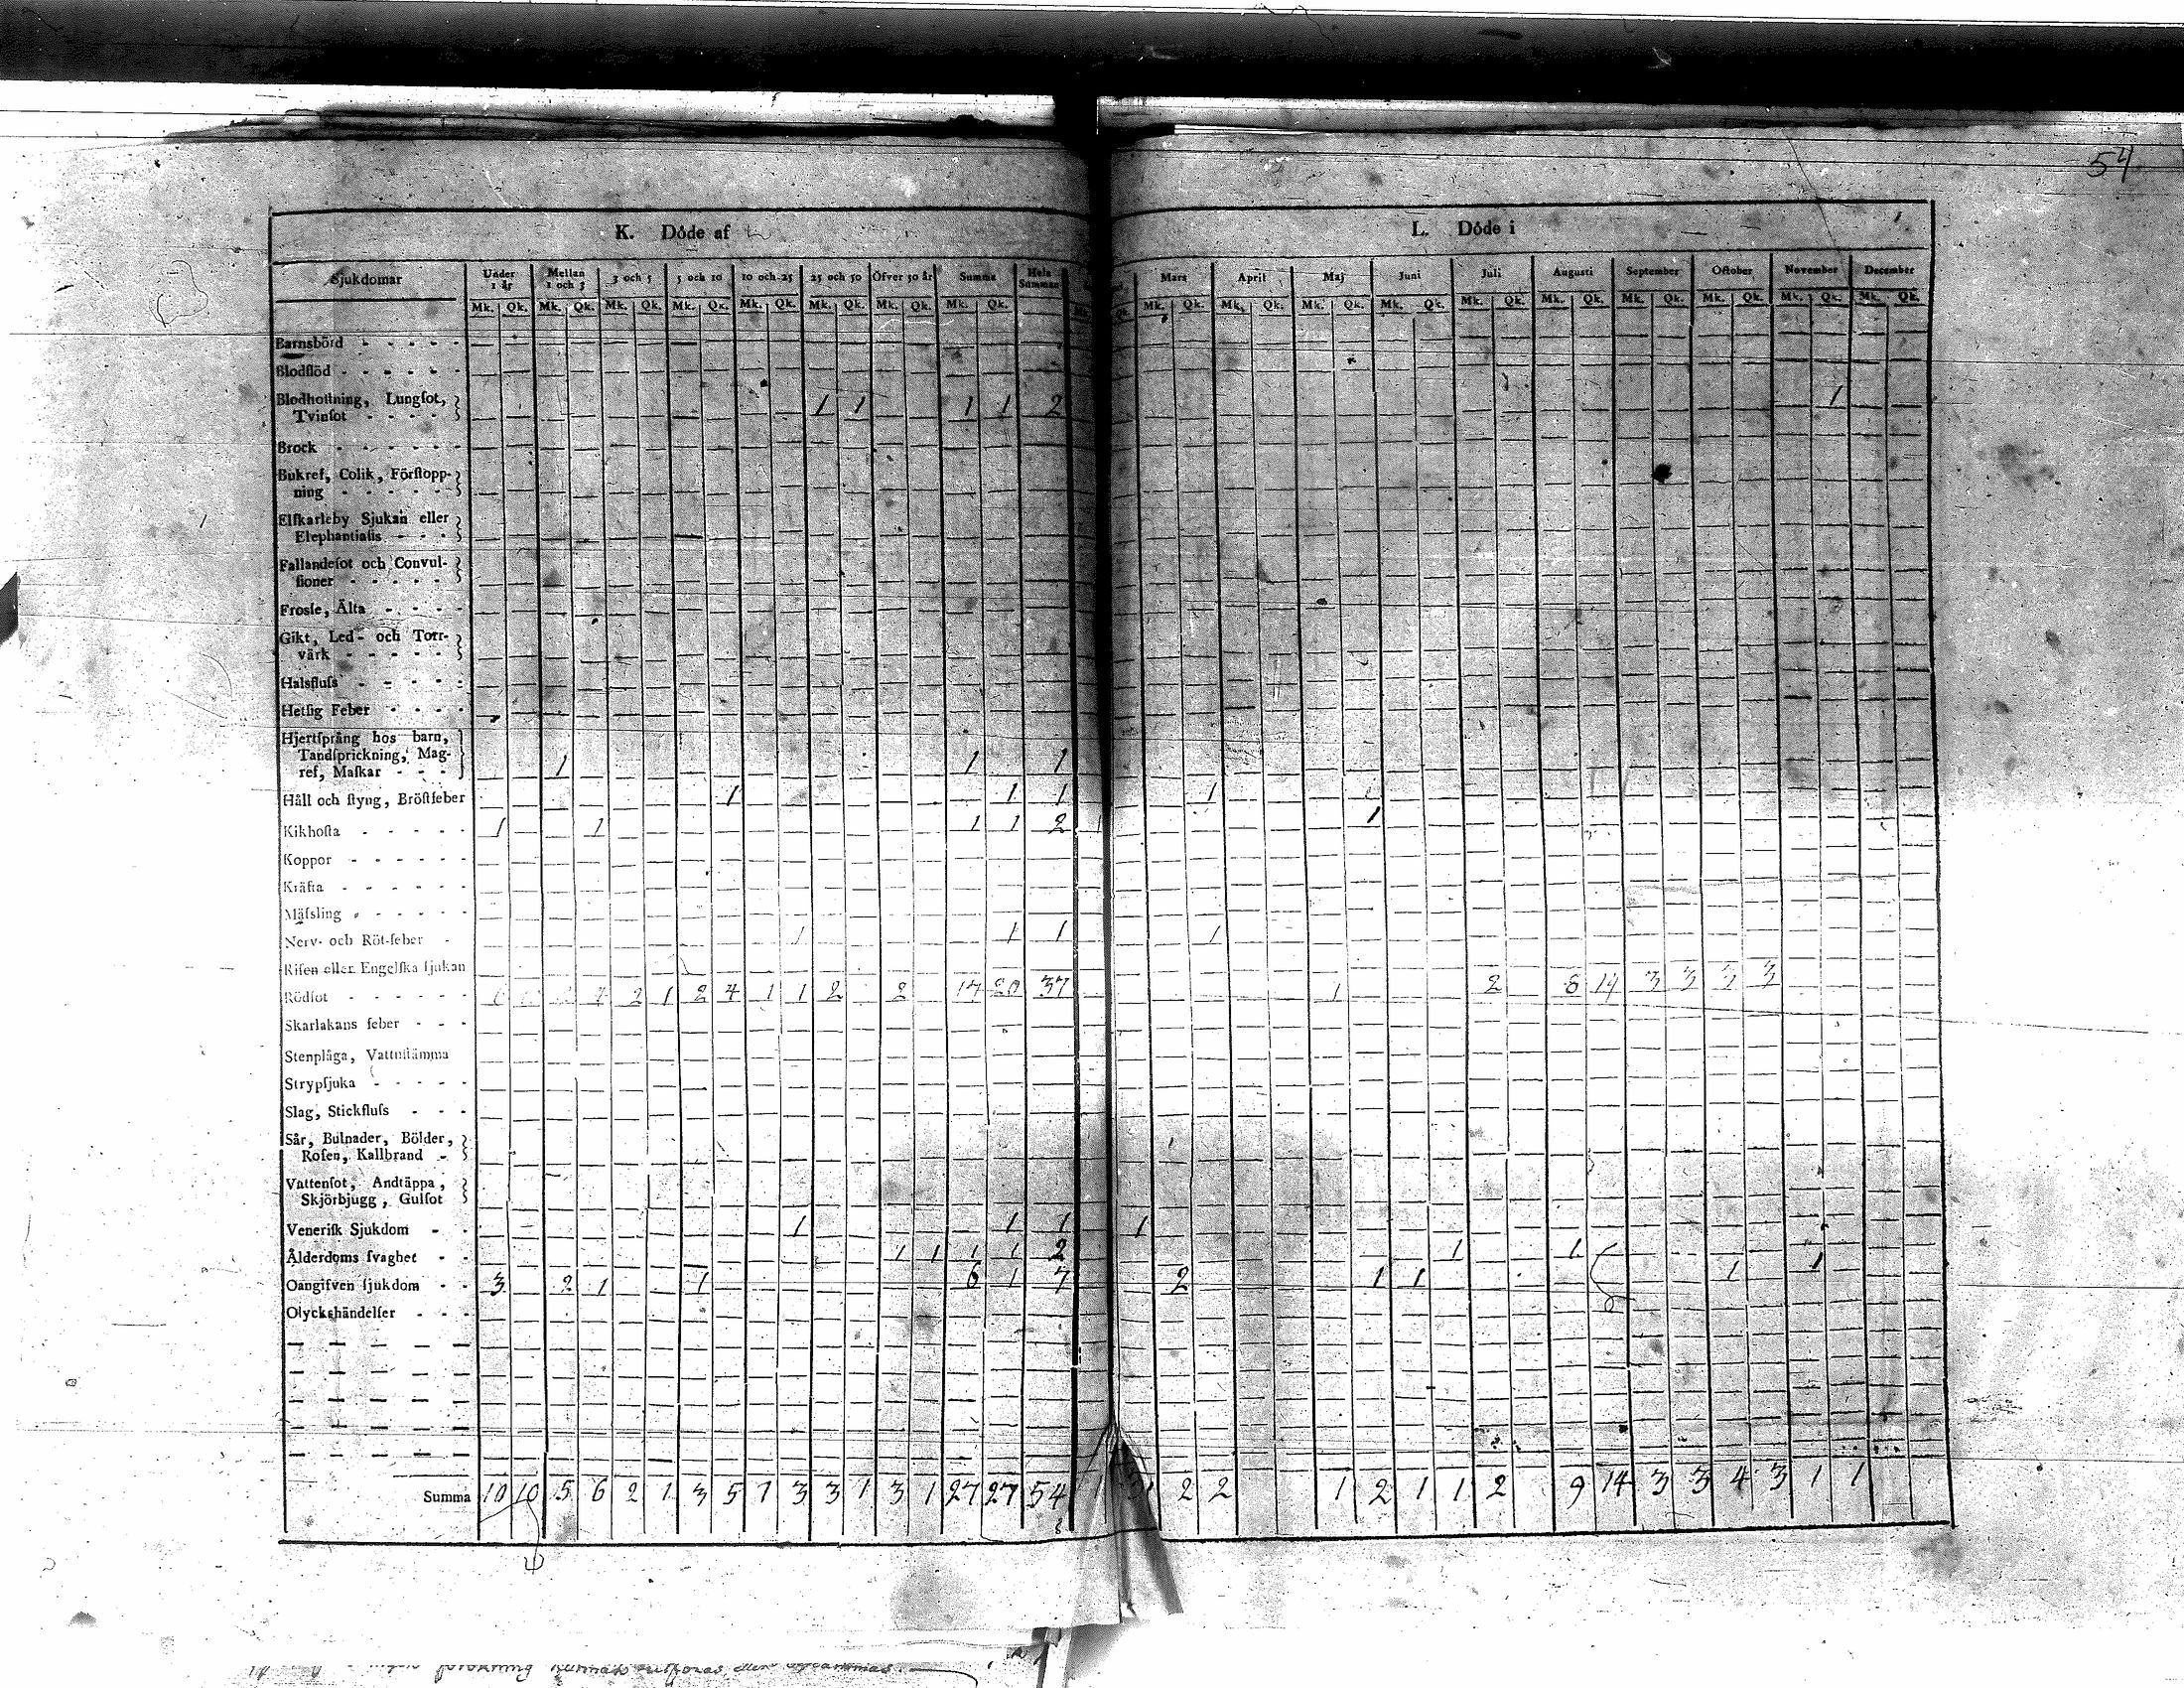 54
K. Döde af
L. Döde i
Sjukdomar Under 1 år Mellan 1 och 3 3 och 5 5 och 10 10 och 25 25 och 50 Öfver 50 år Summa Hela Summan Mars April Maj Juni Juli Augusti September October November December
Mk. Qk. Mk. Qk. Mk. Qk. Mk. Qk. Mk. Qk. Mk. Qk. Mk. Qk. Mk. Qk. Qk. Mk. Qk. Mk. Qk. Mk. Qk. Mk. Qk. Mk. Qk. Mk. Qk. Mk. Qk. Mk. Qk. Mk. Qk. Mk. Qk.
Barnsbörd - - - - -
Blodflöd - - - - - -
Blodhostning, Lungſot,
Tvinſot - - - - 1 1 1 1 2 1
Brock - - - - - -
Bukref, Colik, Förſtopp-
ning - - - - -
Elfkarleby Sjukan eller
Elephantiaſis - - -
Fallandeſot och Convul-
ſioner - - - - -
Froſſe, Älta - - - -
Gikt, Led- och Torr-
värk - - - - -
Halsfluſs - - - - -
Hetſig Feber - - - -
Hjertſprång hos barn,
Tandſprickning, Mag-
ref, Maſkar - - - 1 1 1
Håll och ſtyng, Bröſtfeber 1 1 1 1
Kikhoſta - - - - - 1 1 1 1 2 1 1
Koppor - - - - - -
Kräfta - - - - - -
Mäſsling - - - - - -
Nerv- och Röt-feber - 1 1 1 1
Riſen eller Engelſka ſjukan
Rödſot - - - - - - 2 1 2 4 1 1 2 2 17 20 37 1 2 8 14 3 3 3 3
Skarlakans feber - - -
Stenplåga, Vattuſtämma
Strypſjuka - - - - -
Slag, Stickfluſs - - -
Sår, Bulnader, Bölder,
Roſen, Kallbrand -
Vattenſot, Andtäppa,
Skjörbjugg, Gulſot
Veneriſk Sjukdom - - 1 1 1 1
Ålderdoms ſvaghet - - 1 1 1 1 2 1 1
Oangifven ſjukdom - - 3 2 1 1 6 1 7 2 1 1 1 1
Olyckshändelſer - - -
Summa 10 10 5 6 2 1 3 5 1 3 3 1 3 1 27 27 54 1 2 2 1 2 1 1 2 9 14 3 3 4 3 1 1